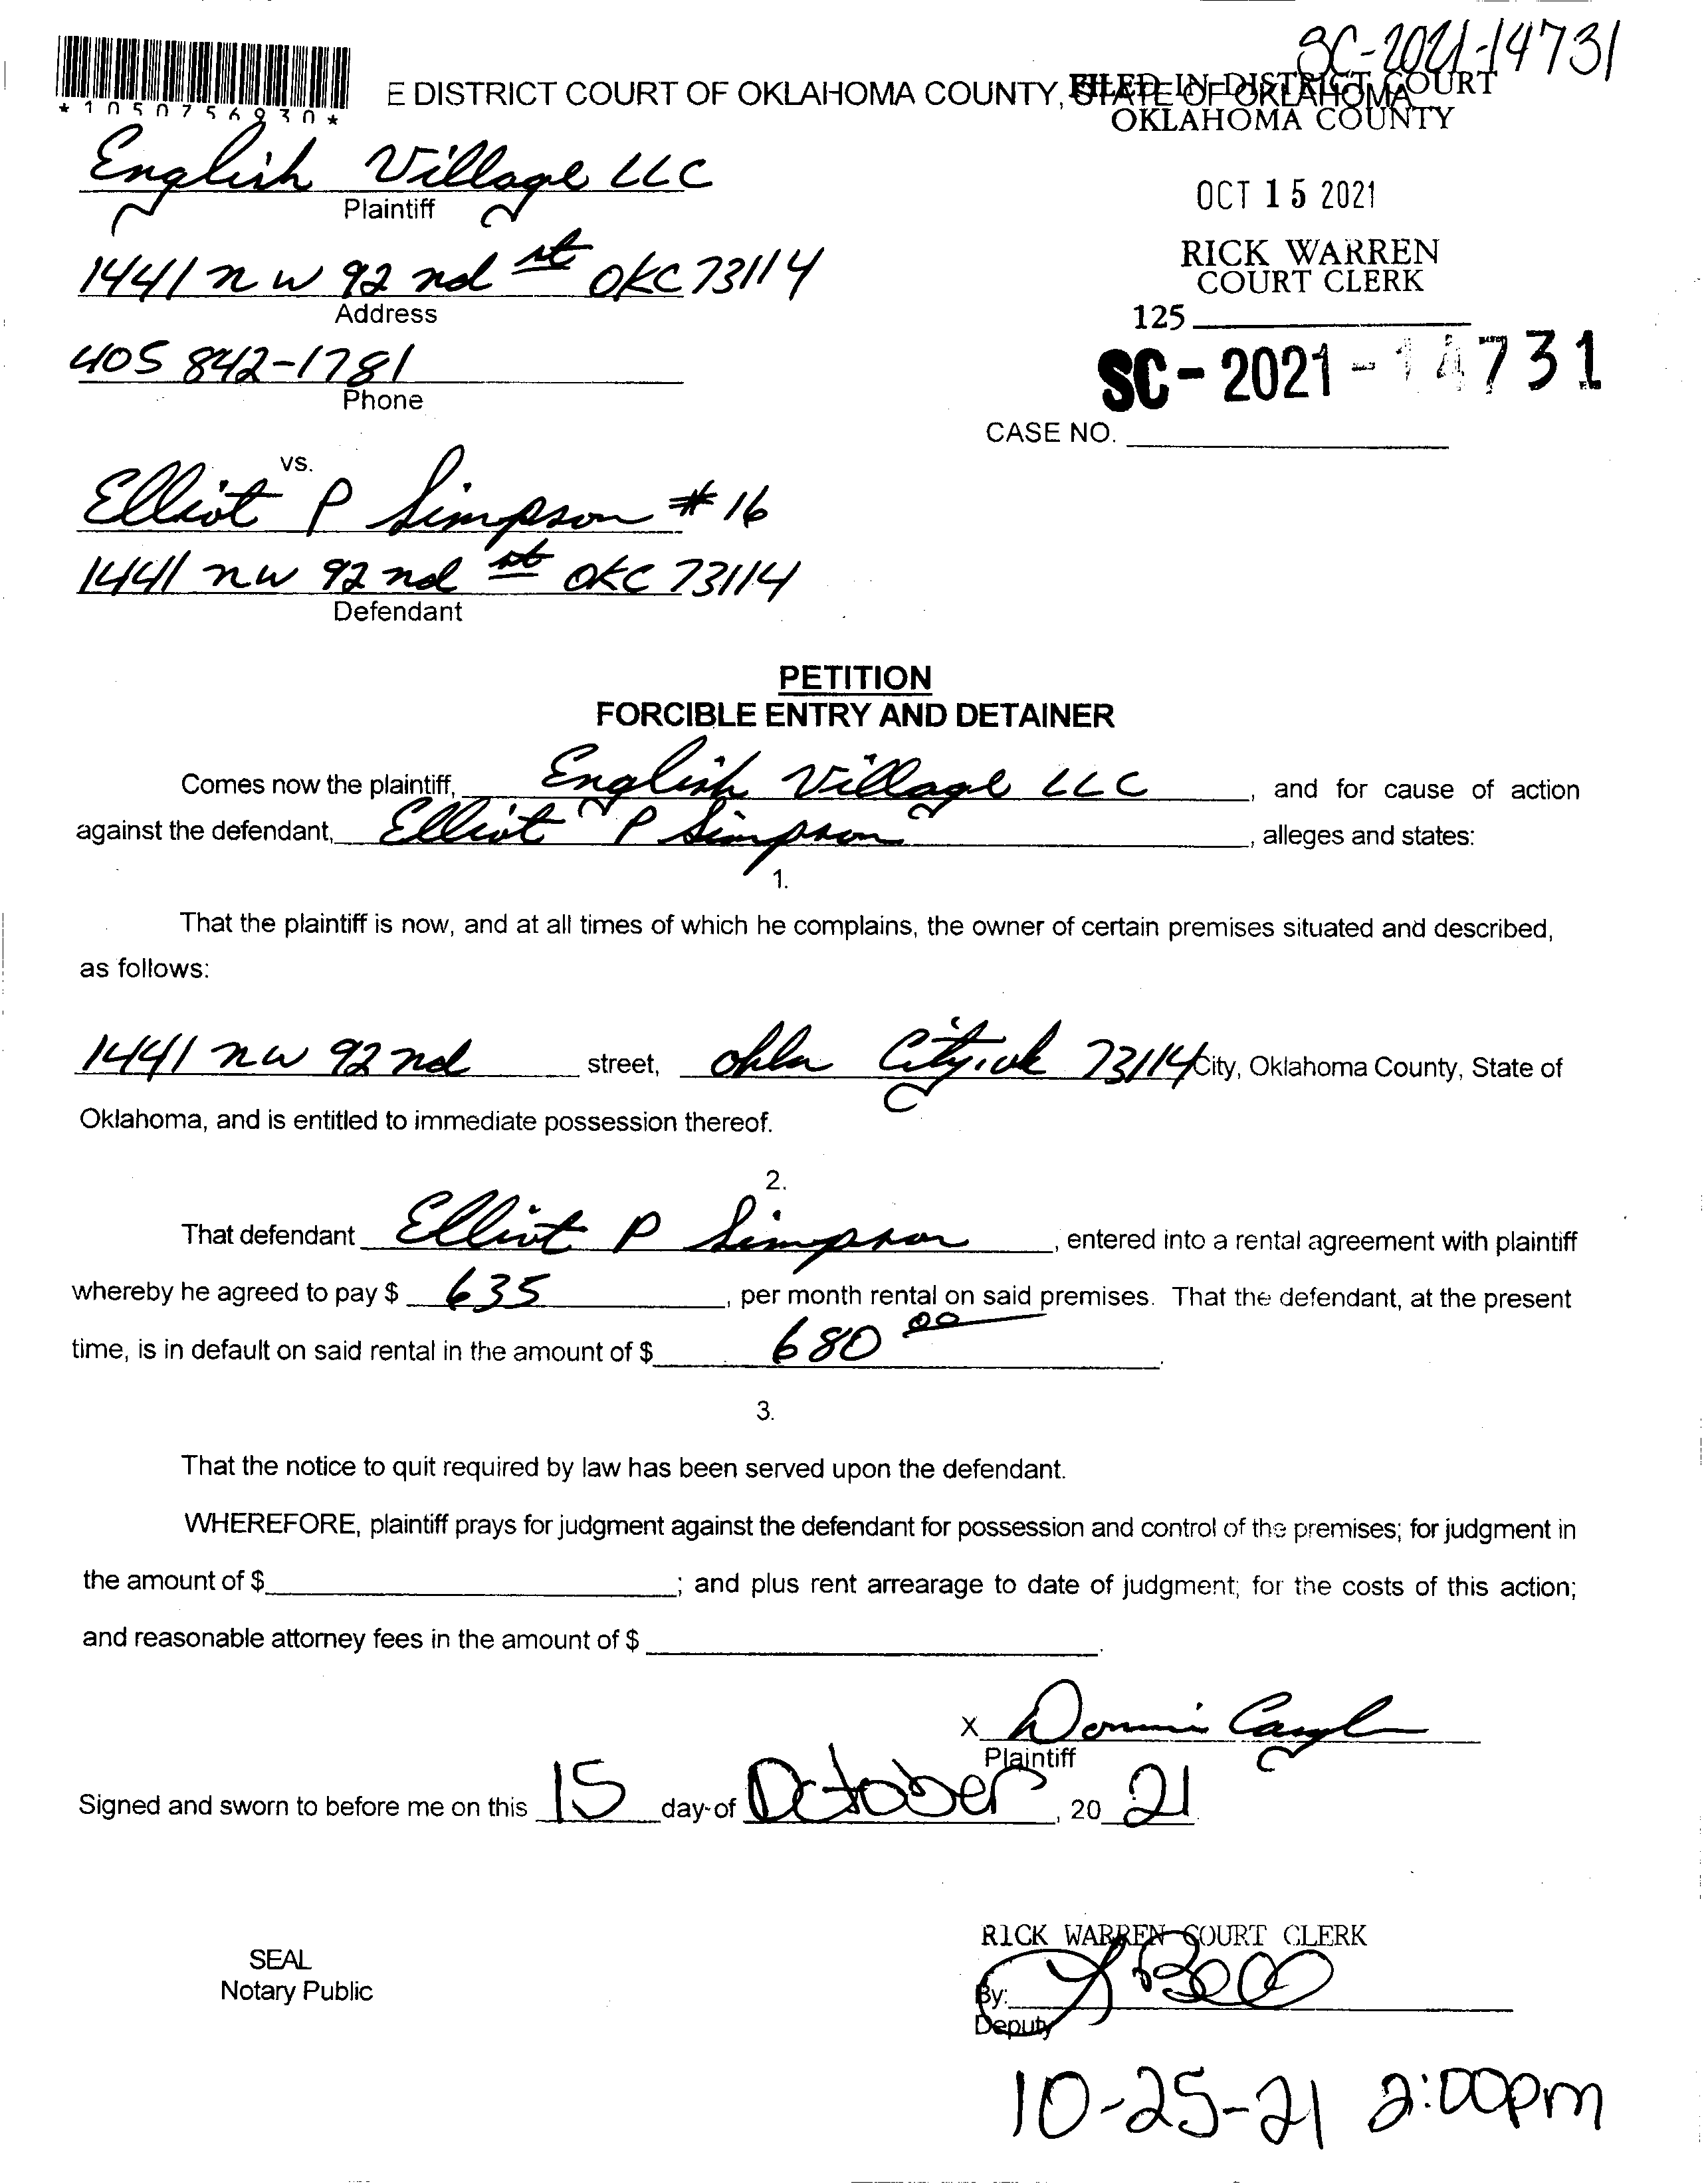 SC-2021-14731
*1050756930*
E DISTRICT COURT OF OKLAHOMA COUNTY, STATE OF OKLAHOMA
FILED IN DISTRICT COURT
OKLAHOMA COUNTY
OCT 15 2021
RICK WARREN
COURT CLERK
125
SC-2021-14731
CASE NO.
English Village LLC
Plaintiff
1441 NW 92nd st OKC 73114
Address
405 842-1781
Phone
vs.
Elliot P Simpson #16
1441 NW 92nd st OKC 73114
Defendant
PETITION
FORCIBLE ENTRY AND DETAINER
Comes now the plaintiff, English Village LLC, and for cause of action
against the defendant, Elliot P Simpson, alleges and states:
1.
That the plaintiff is now, and at all times of which he complains, the owner of certain premises situated and described,
as follows:
1441 NW 92nd street, Okla City, ok 73114 City, Oklahoma County, State of
Oklahoma, and is entitled to immediate possession thereof.
2.
That defendant Elliot P Simpson, entered into a rental agreement with plaintiff
whereby he agreed to pay $ 635, per month rental on said premises. That the defendant, at the present
time, is in default on said rental in the amount of $ 680 00.
3.
That the notice to quit required by law has been served upon the defendant.
WHEREFORE, plaintiff prays for judgment against the defendant for possession and control of the premises; for judgment in
the amount of $; and plus rent arrearage to date of judgment; for the costs of this action;
and reasonable attorney fees in the amount of $.
X
Plaintiff
Signed and sworn to before me on this 15 day of October, 20 21
SEAL
Notary Public
RICK WARREN COURT CLERK
By:
Deputy
10-25-21 2:00pm